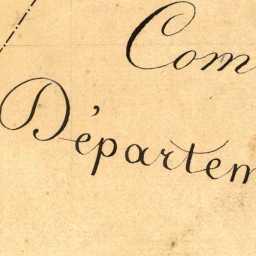 Com
Départem